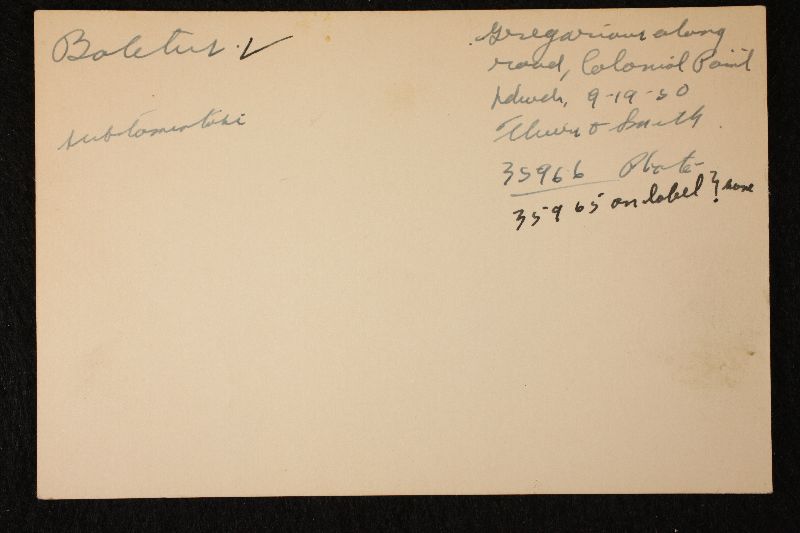 Boletus ✓
subtomentosi
Gregarious along
road, Colonial Point
hdwds, 9-19-50
Thiers & Smith
35966 Photo
35965 on label ?